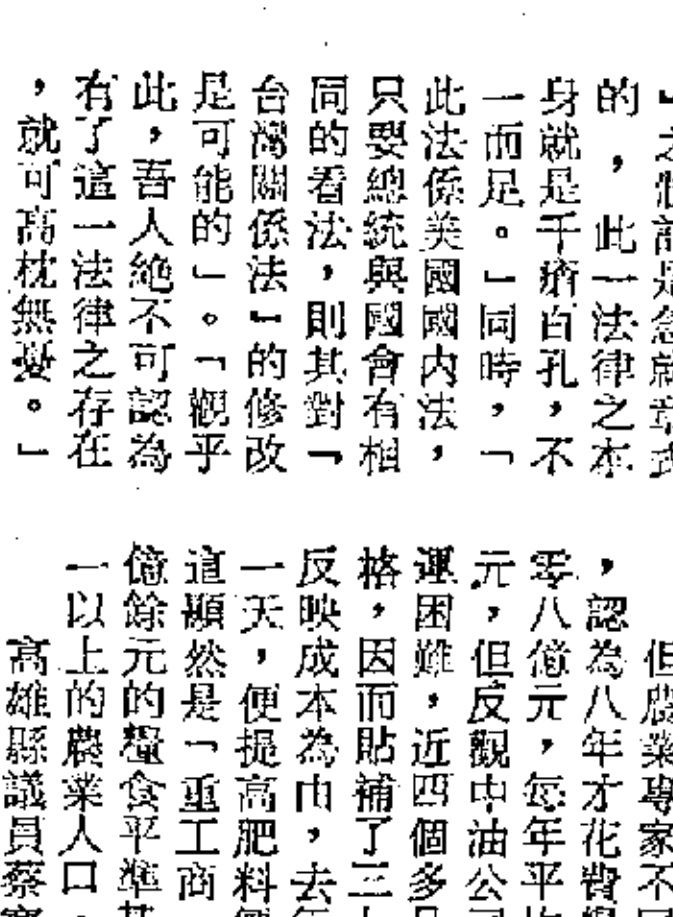 』之性制是急就章式
的,此一法律之本
身就是千瘡百孔,不
一而足。」同時,「
此法係美國國內法,
只要總統與國會有相
同的看法,則其對『
台灣關係法』的修改
是可能的」。「觀乎
此,吾人絶不可認為
有了這一法律之存在
,就可高枕無憂。」
但農業專家不
,認為八年才花費
零八億元,每年平
元,但反觀中油公
運困難,近四個多
格,因而貼補了三
反映成本為由,去
一天,便提高肥料
這顯然是「重工商
億餘元的糧食平準
一以上的農業人口,
高雄縣議員蔡